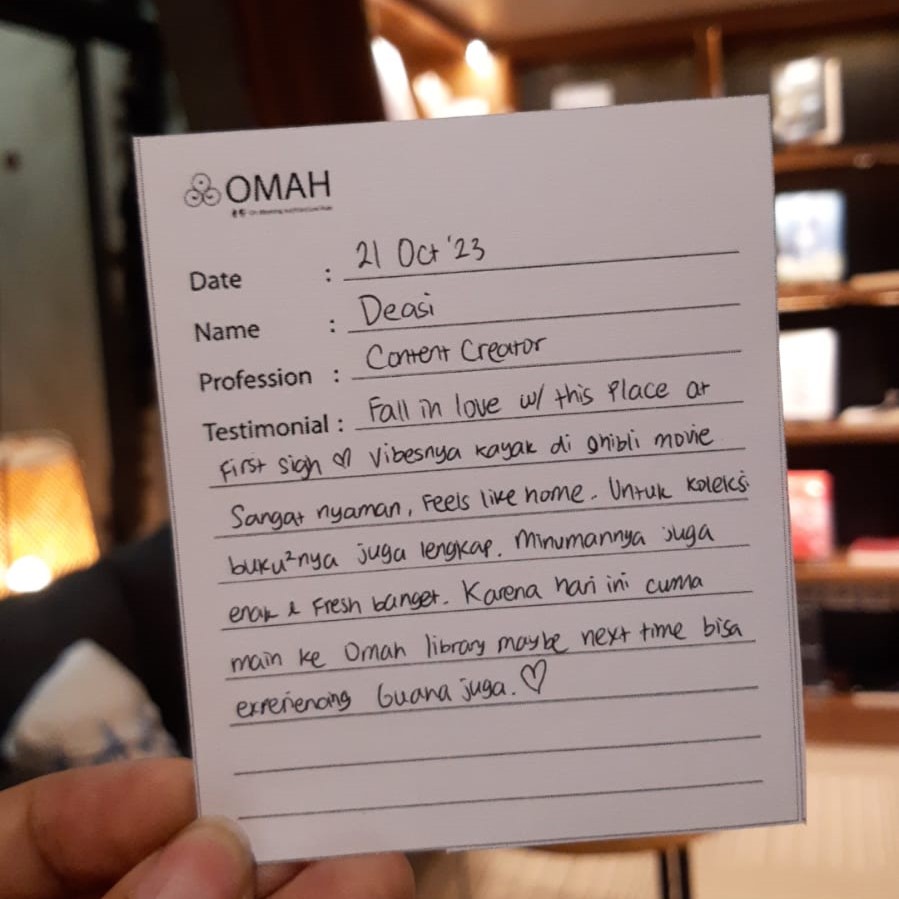 OMAH
Date : 21 Oct '23
Name : Deasi
Profession : Content Creator
Testimonial : Fall in love w/ this place at
first sigh ♡ Vibesnya kayak di ghibli movie
Sangat nyaman, Feels like home. Untuk koleksi
buku²nya juga lengkap. Minumannya juga
enak & Fresh banget. Karena hari ini cuma
main ke Omah library maybe next time bisa
experiencing Guana juga. ♡